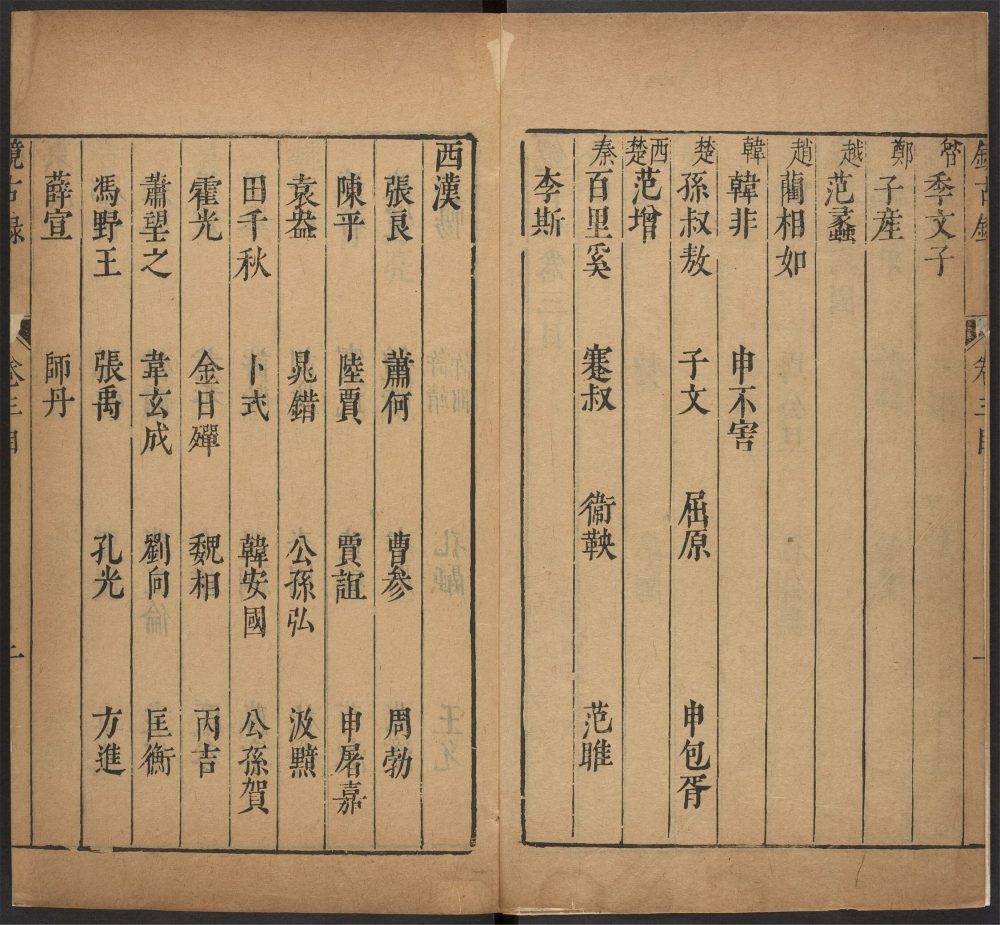 鏡古錄 卷三目 一
季文子
鄭 子產
越 范蠡
趙 藺相如
韓 韓非 申不害
楚 孫叔敖 子文 屈原 申包胥
西楚 范增
秦 百里奚 蹇叔 衞鞅 范雎
李斯
西漢
張良 蕭何 曹参 周勃
陳平 陸賈 賈誼 申屠嘉
袁盎 晁錯 公孫弘 汲黯
田千秋 卜式 韓安國 公孫賀
霍光 金日磾 魏相 丙吉
蕭望之 韋玄成 劉向 匡衡
馮野王 張禹 孔光 方進
薛宣 師丹
鏡古録 卷三目 二